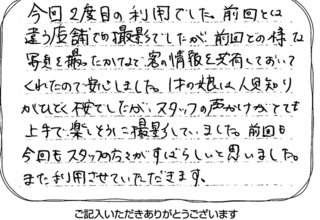 今回2度目の利用でした。前回とは
違う店舗での撮影でしたが、前回との様な
写真を撮ったかなど客の情報を共有しておいて
くれたので安心しました。1才の娘は人見知り
がひどく心配でしたが、スタッフの声かけがとても
上手で楽しそうに撮影していました。前回も
今回もスタッフの方々がすばらしいと思いました。
また利用させていただきます。
ご記入いただきありがとうございます